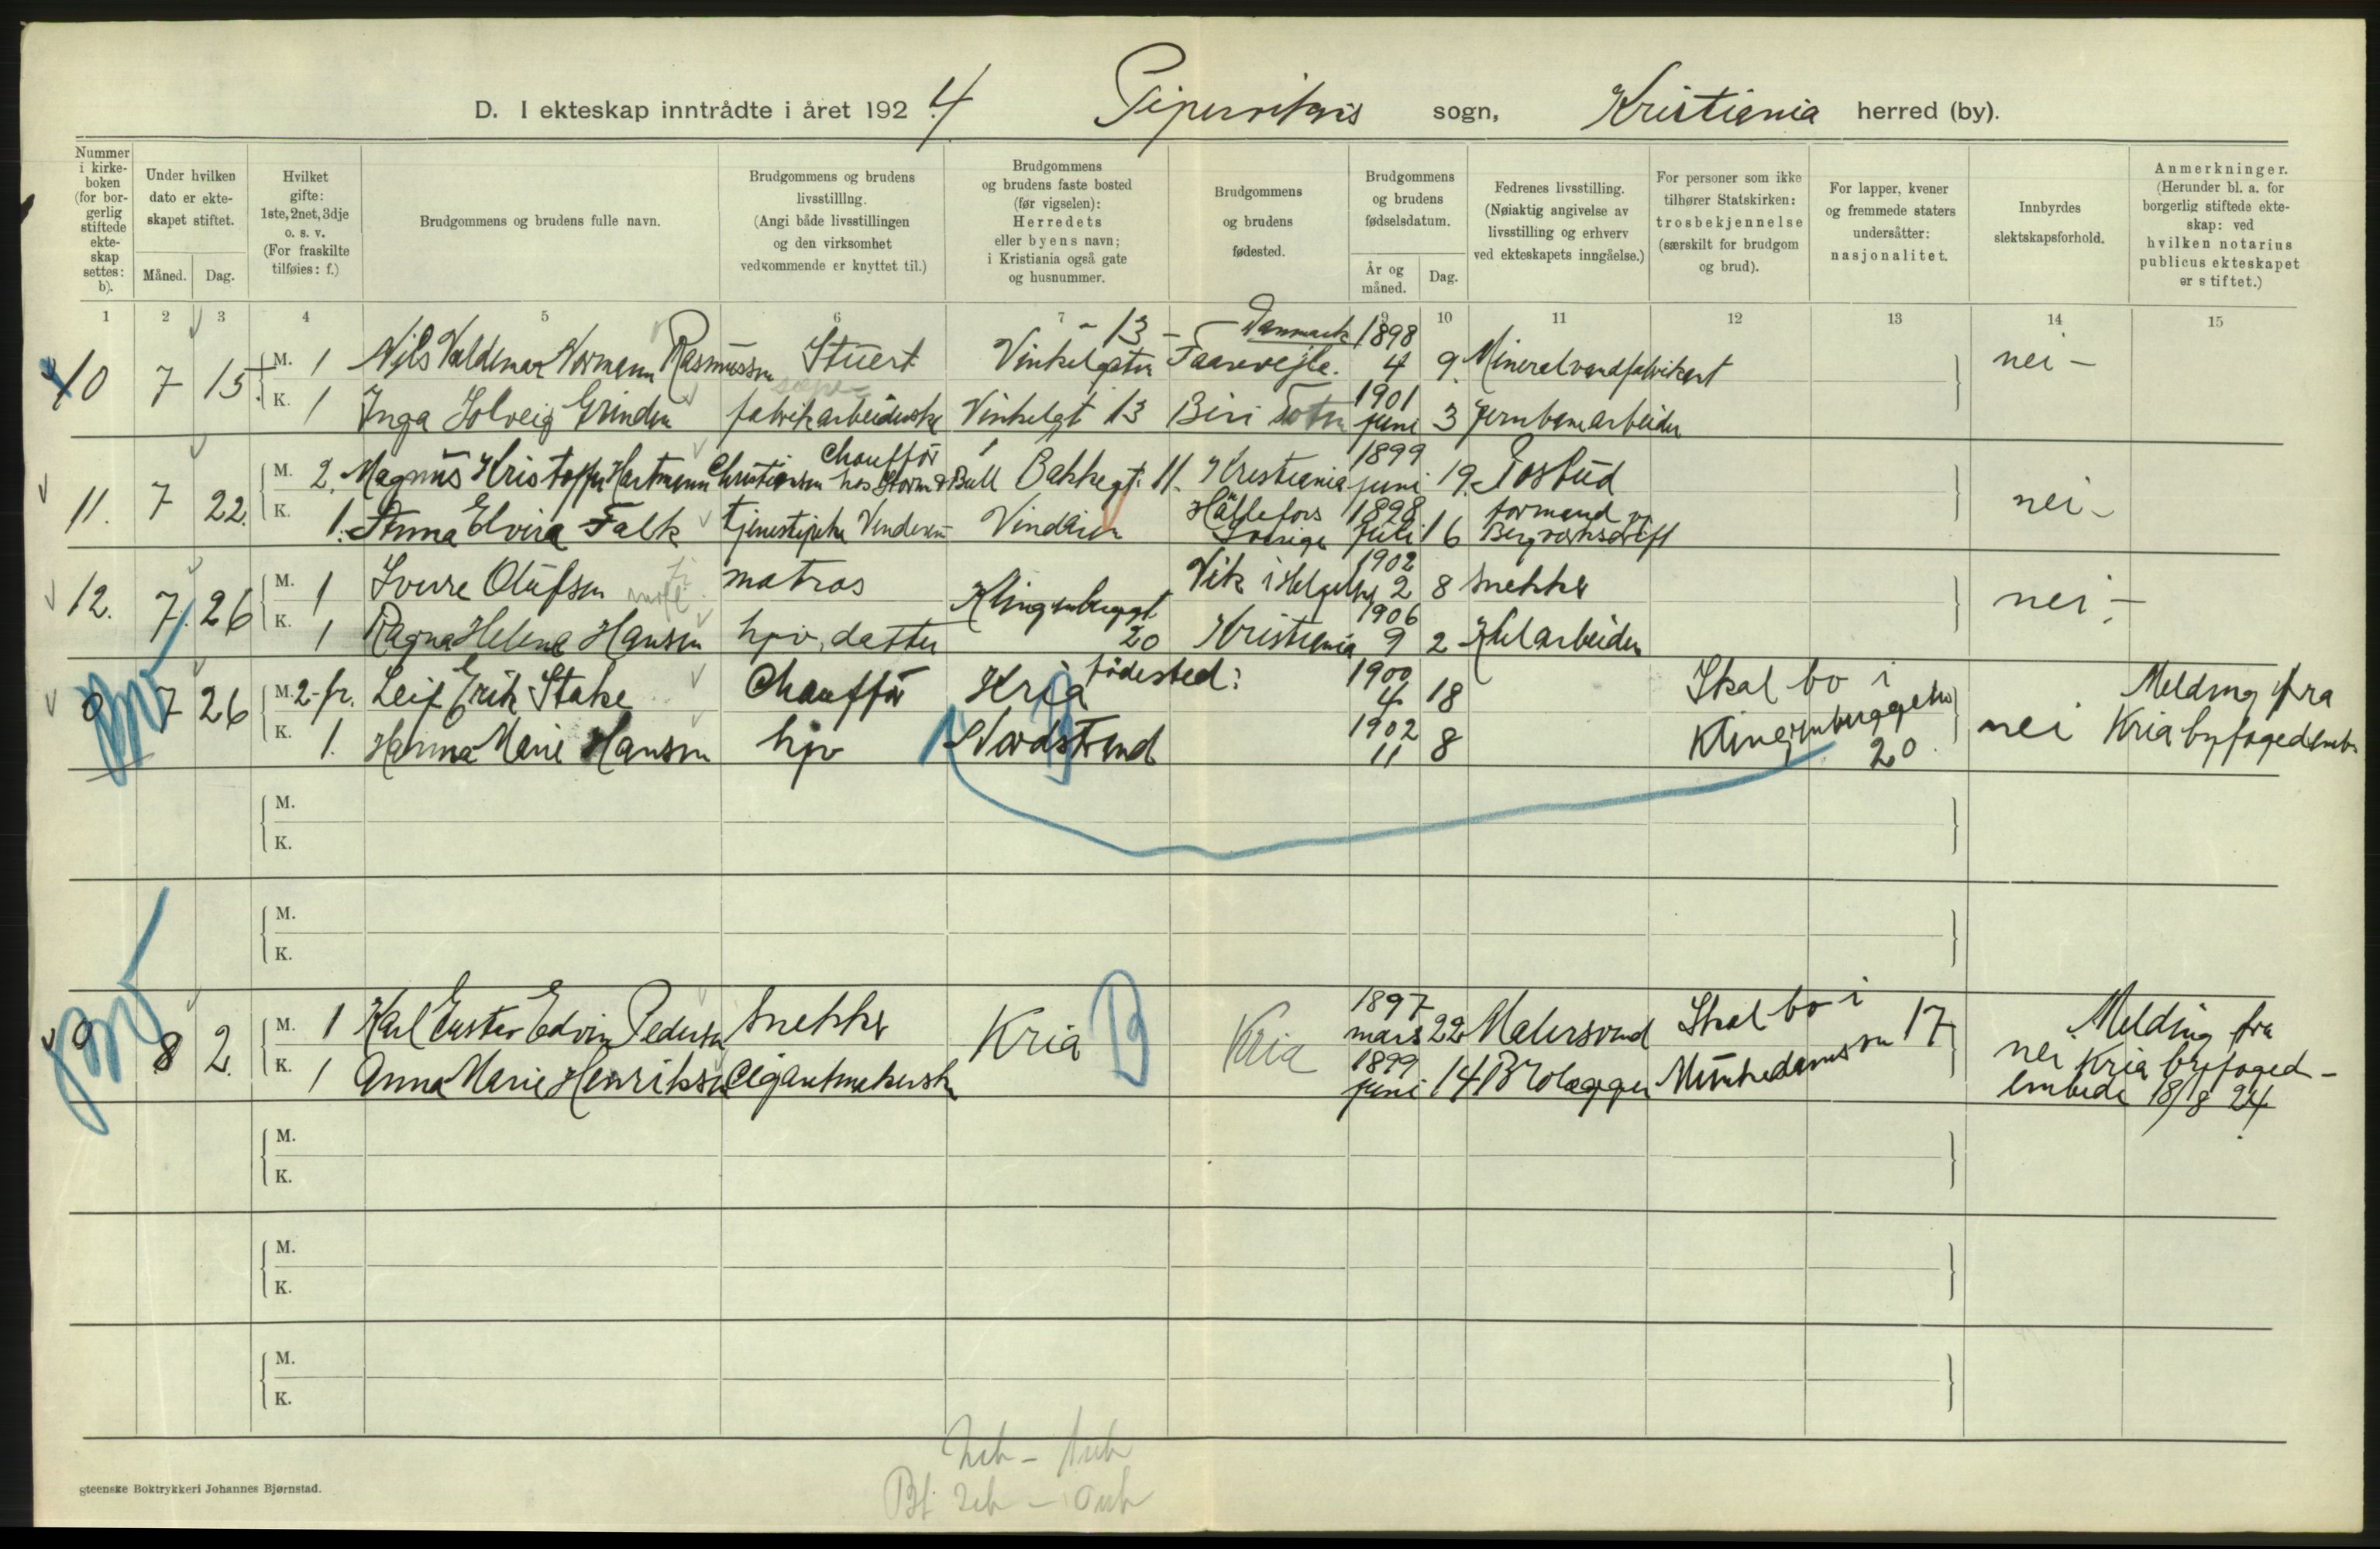 D. I ekteskap inntrådte i året 1924 Pipervikens sogn, Kristiania herred (by).
Nummer i kirke-boken (for bor-gerlig stiftede ekte-skap settes: b).
Under hvilken dato er ekte-skapet stiftet.
Måned. Dag.
Hvilket gifte: 1ste, 2net, 3dje o. s. v. (For fraskilte tilføies: f.)
Brudgommens og brudens fulle navn.
Brudgommens og brudens livsstilllng. (Angi både livsstillingen og den virksomhet vedkommende er knyttet til.)
Brudgommens og brudens faste bosted (før vigselen): Herredets eller byens navn; i Kristiania også gate og husnummer.
Brudgommens og brudens fødested.
Brudgommens og brudens fødselsdatum.
År og måned. Dag.
Fedrenes livsstilling. (Nøiaktig angivelse av livsstilling og erhverv ved ekteskapets inngåelse.)
For personer som ikke tilhører Statskirken: trosbekjennelse (særskilt for brudgom og brud).
For lapper, kvener og fremmede staters undersåtter: nasjonalitet.
Innbyrdes slektskapsforhold.
Anmerkninger. (Herunder bl. a. for borgerlig stiftede ekte-skap: ved hvilken notarius publicus ekteskapet er stiftet.)
1 2 3 4 5 6 7 8 9 10 11 12 13 14 15
10 7 15. M. 1 Nils Valdemar Normann Rasmussen Stuert Vinkelgaten - 13 - Danmark Faarevejle. 1898 4 9. Mineralvandfabrikant nei -
K. 1 Inga Solveig Grinden fabrikarbeiderske Vinkelgt 13 Biri Toten 1901 juni 3 Jernbanearbeider
11. 7 22. M. 2. Magnus Kristoffer Hartmann Christiansen Chauffør hos Storm & Bull Bakkegt. 11. Kristiania 1899 juni 19. Postbud nei -
K. 1. Anna Elvira Falk tjenestepike Vinderen Vinderen Hällefors Sverige 1898 Juli 16 formand v Bergverksdrift
12. 7. 26 M. 1 Sverre Olufsen matros Klingenberggt. 20 Vik i Helgeland 1902 2 8 Snekker nei -
K. 1 Ragna Helene Hansen hjv. datter Kristiania 1906 9 2 Kularbeider
7 26 M. 2-fr. Leif Erik Stake Chauffør Kria fødested: 1900 4 18 Skal bo i Klingenberggeten 20. nei Melding fra Kria byfogedemb.
K. 1. Hanna Marie Hansen hjv Nordstrand 1902 11 8
M.
K.
M.
K.
8 2. M. 1 Karl Gustav Edvin Pedersen Snekker Kria B Kria 1897 mars 22 Malersvend Skal bo i Munkedamsvn 17 nei Melding fra Kria byfoged-embede 18/8 24.
K. 1 Anna Marie Henriksen Cigarmakerske 1899 juni 14 Brolægger
M.
K.
M.
K.
M.
K.
Steenske Boktrykkeri Johannes Bjørnstad.